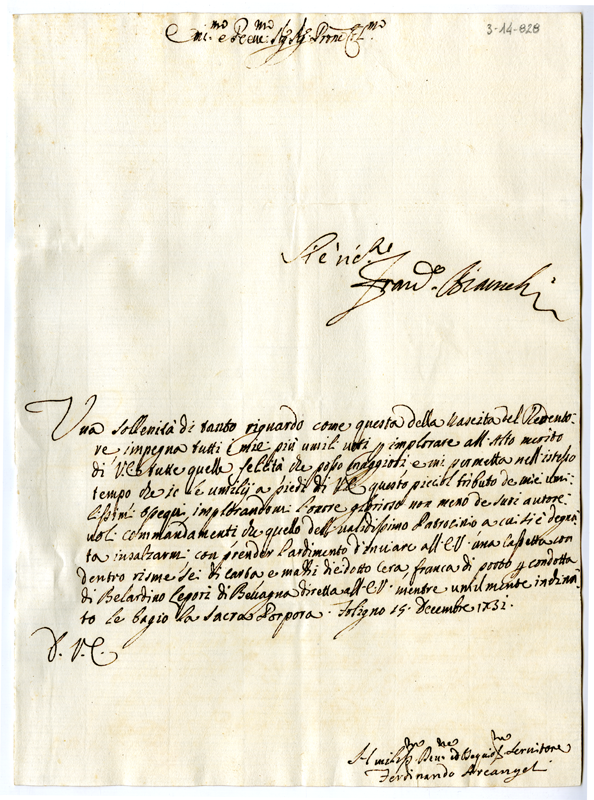 3-14-828
Emi.mo e Reve.mo Sig. Sig. Prone Col.mo
Franc.o Bianchi
Una sollenità di tanto riguardo come questa della Nascita del Redento:
re impegna tutti i miei più umili voti p implorare all'Alto merito
di V.E. tutte quelle felicità che posso maggiori e mi permetta nell'istesso
tempo che io le umilij a piedi di V.E. questo picciol tributo de miei umi
lissimi ossequi, implorandomi l'onore glorioso non meno de suoi autore
voli commandamenti che quello dell validissimo Patrocinio a cui si è degna
ta inalzarmi con prender l'ardimento d'inviare all'E.V. una cassetta con
dentro risme sei di carta e mazzi diedotto cera franca di porto p condotta
di Belardino Lepori di Bevagna diretta all'E.V. mentre umilmente inchina
to le bagio la Sacra Porpora. Foligno 15 Decembre 1732.
D. V. E.
Humiliss.mo Dev.mo ed Obequios.mo Servitore
Ferdinando Arcangeli